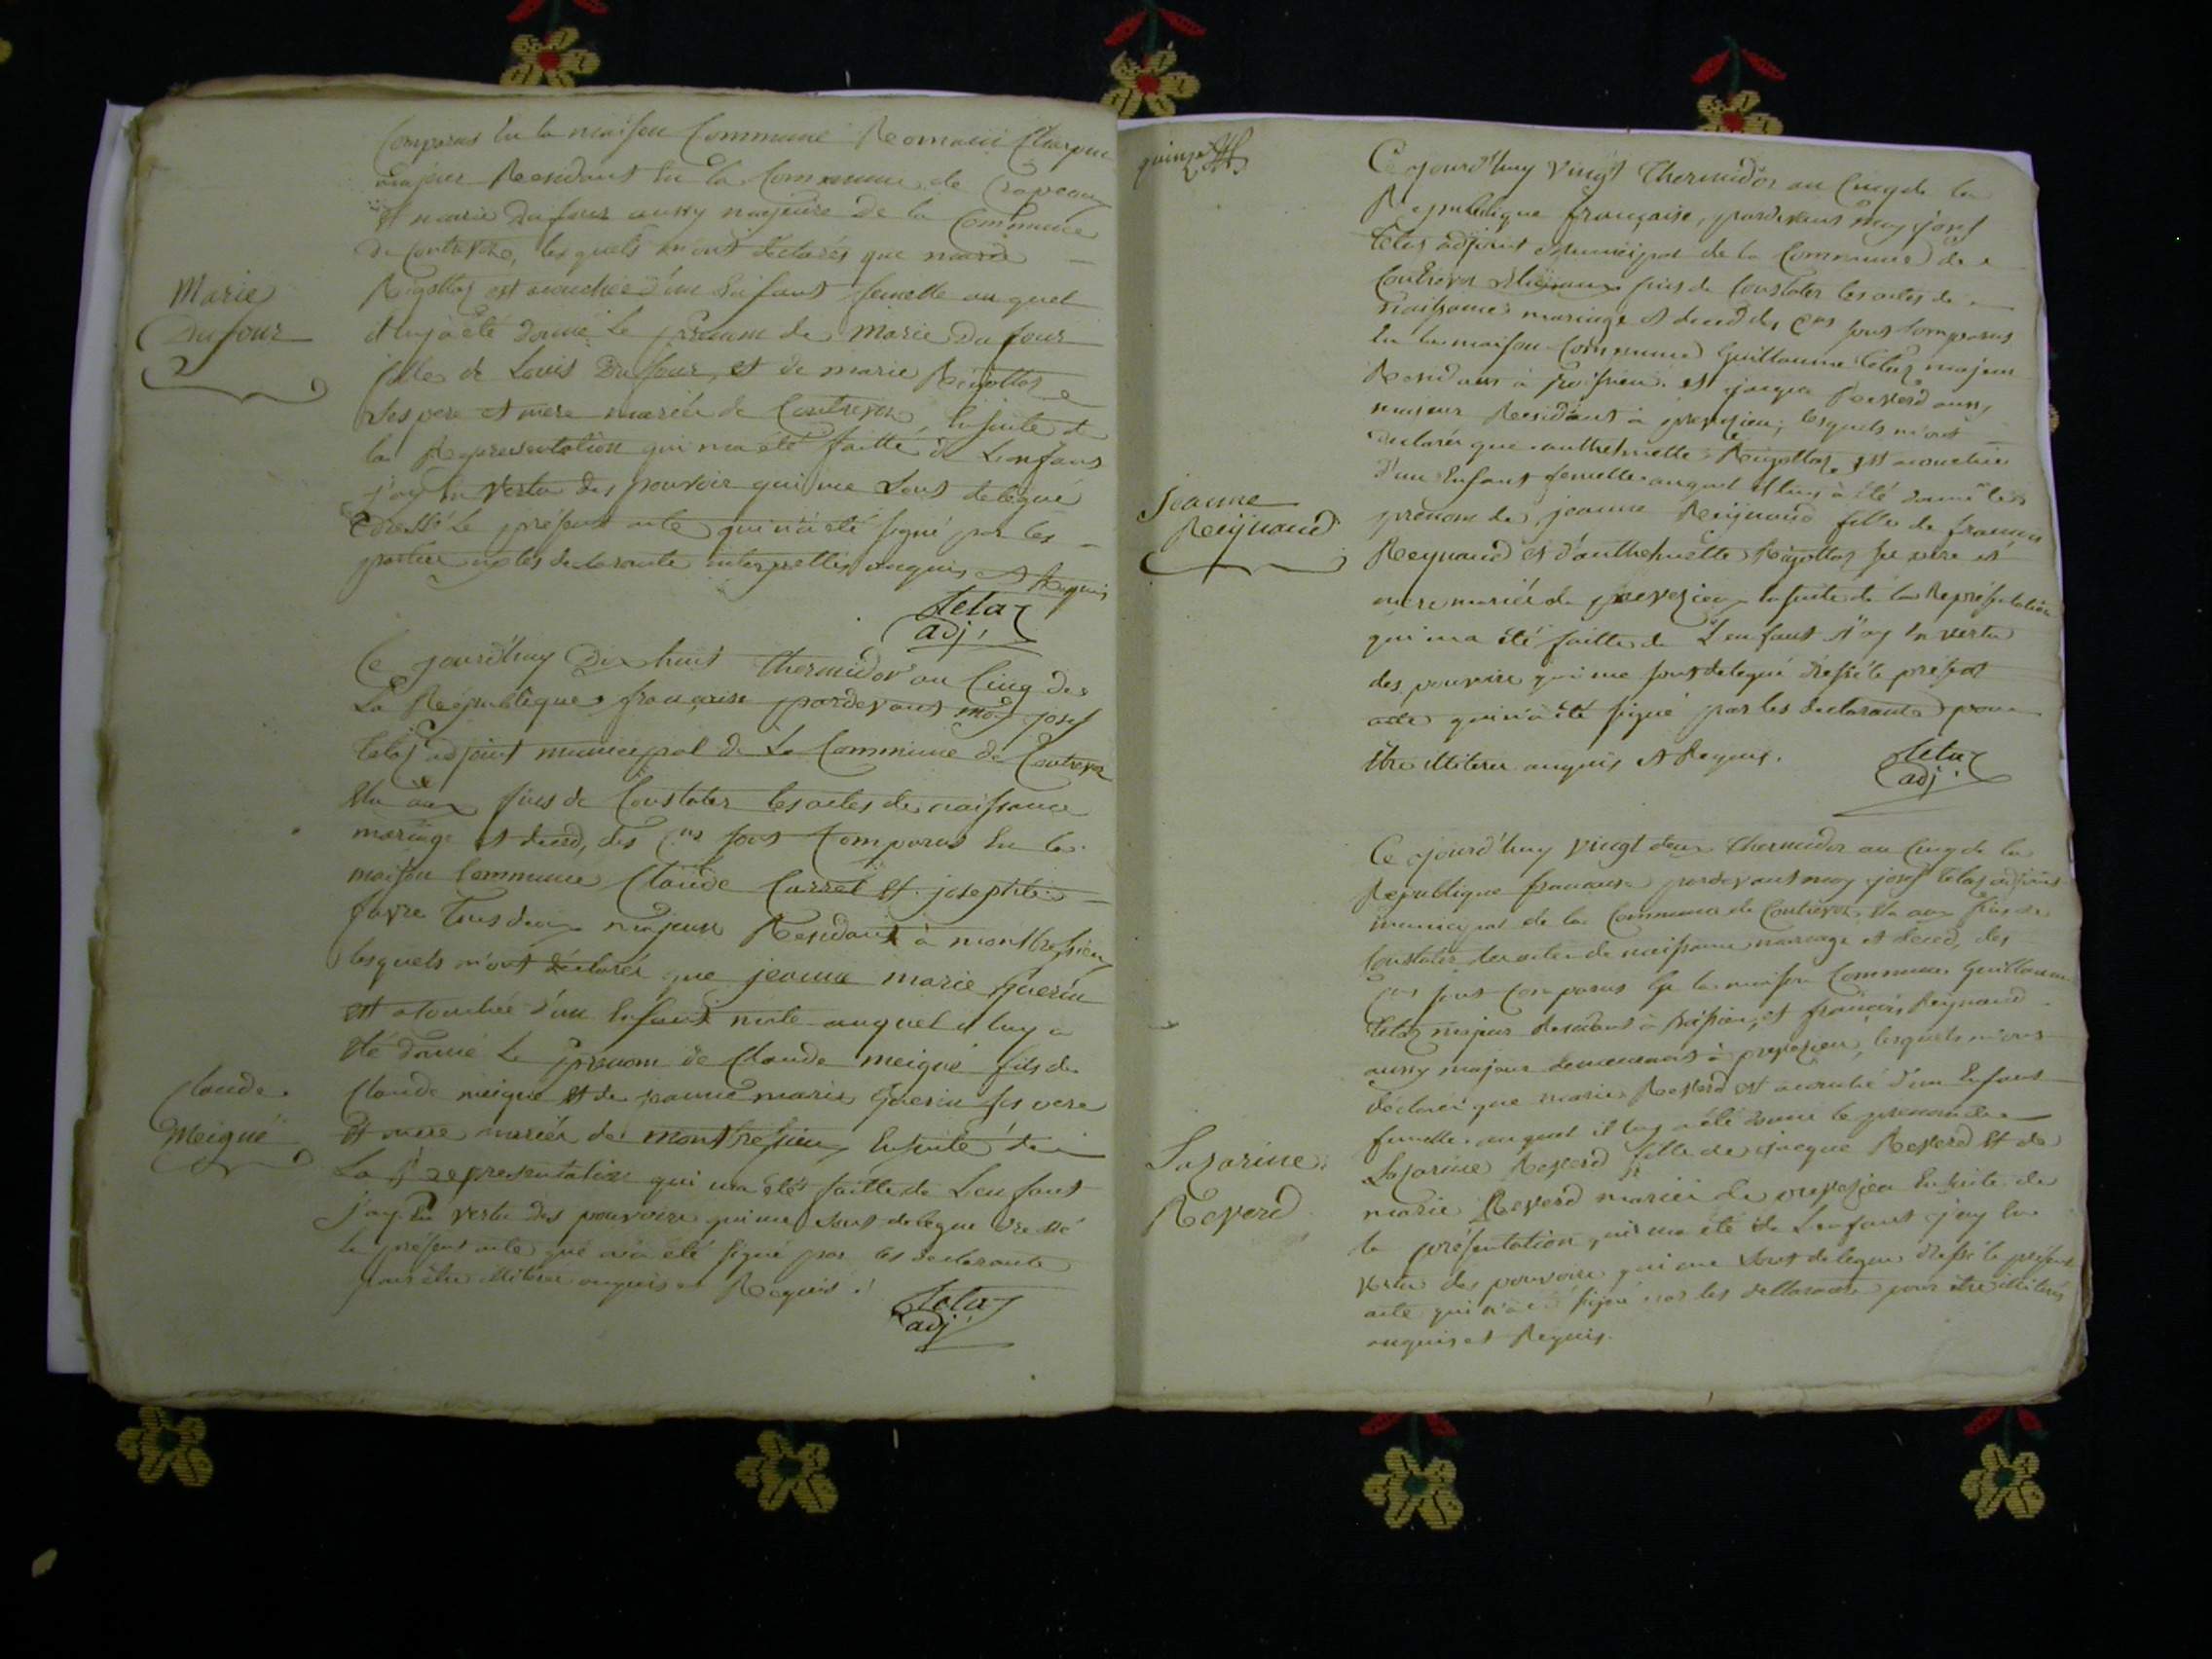 Comparus En la maison Commune Romain
majeur Residant En la Commune de Crapeaux
Et marie Dufour aussy majeure De la Commune
de Contrevoz, lesquels m'ont déclarés que marie
Rigollaz est acouchée d'un Enfant femelle auquel
il luy à été donné Le prenom de Marie Dufour
fille de Louis Dufour, et de marie Rigollaz
Ses pere et mere mariés de Contrevoz, Ensuite de
la Representation qui ma été faitte de Lenfant
j'ay En Vertu des pouvoir qui me Sont delegué
Dressé Le présent acte qui n'a été signé par les
parties ny les declarants interpellés enquis et Requis
Marie
Dufour
Tetaz
adj.
Ce jourd'huy Dix huit thermidor an Cinq de
La Républiques française pardevant moy josef
Tetaz adjoint municipal de La Commune de Contrevoz
Elu aux fins de Constater les actes de naissance
mariage et deced, des Cens sont Comparus En la
maison Commune Claude Curret Et joseph
favre Tous deux majeurs Residant à montbressieu
lesquels m'ont déclarés que jeanne marie Guerin
est acouchée d'un Enfant mâle auquel il luy a
été donné Le prenom de Claude meigné fils de
Claude meigné Et de jeanne marie Guerin ses pere
Et mere mariés de montbressieu Ensuite de
La representation qui ma été faitte de Lenfant
j'ay En vertu des pouvoirs qui me Sont delegué dressé
le présent acte qui n'a été signé par les declarants
pour être illiteré enquis et Requis.
Claude
Meigné
Tetaz
adj.
quinze
Ce jourd'huy Vingt Thermidor an Cinq de la
Republique française, pardevant moy josef
Tetaz adjoint municipal de la Commune de
Contrevoz Elu aux fins de Constater les actes de
naissance mariage et deced des Cens sont Comparus
En la maison Commune Guillaume Tetaz majeur
Residant à et jacque Reverd aussy
majeur Residant à preveyzieu; lesquels m'ont
declarés que anthelmette Rigollaz est acouchée
d'un Enfant femelle auquel il luy à été donné le
prenom de jeanne Reignaud fille de françois
Reynaud et d'anthelmette Rigollaz ses père et
mere mariés de preveyzieu Ensuite de la Représentation
qui ma été faitte de L'enfant j'ay En vertu
des pouvoirs qui me sont delegué dressé le présent
acte qui n'a été signé par les declarants pour
être illiterés enquis et Requis.
Jeanne
Reignaud
Tetaz
adj.
Ce jourd'huy Vingt deux thermidor an Cinq de la
Republique française pardevant moy josef Tetaz adjoint
municipal de la Commune de Contrevoz Elu aux fins de
Constater les actes de naissance mariage et deced, des
Cens sont Comparus En la maison Commune Guillaume
Tetaz majeur Residant à et françois Reignaud
aussy majeur demeurant à preveyzieu, lesquels m'ont
déclarés que marie Reverd est acouchée d'un Enfant
femelle auquel il luy a été donné le prenom de
Lazarine Reverd fille de jacque Reverd Et de
marie Reverd mariés de preveyzieu Ensuite de
la présentation qui ma été de Lenfant j'ay En
vertu des pouvoirs qui me Sont delegué dressé le présent
acte qui n'a été signé par les declarants pour être illiterés
enquis et Requis.
Lazarine
Reverd